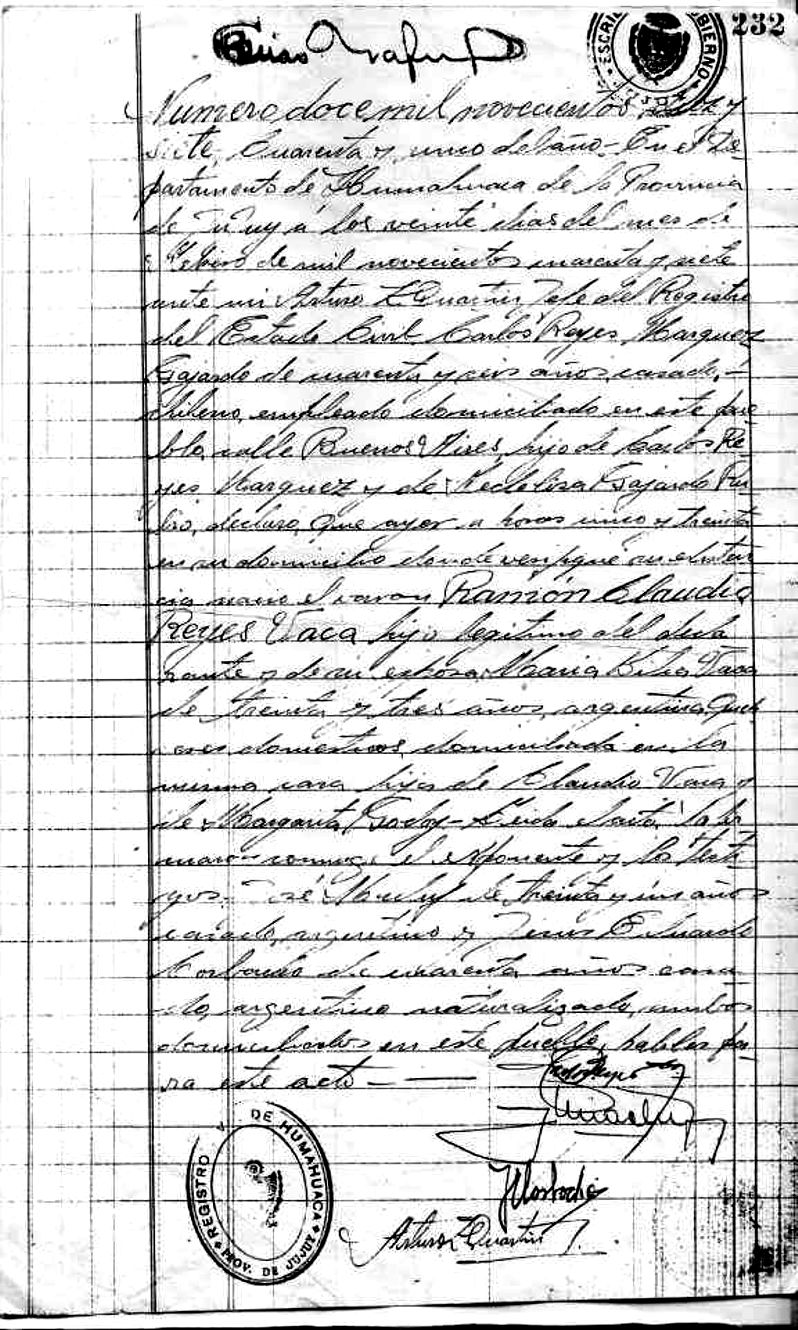 232
ESCRI GOBIERNO
Numero doce mil novecientos y
siete, Cuarenta y uno del año - En el De-
partamento de Humahuaca de la Provincia
de Jujuy a los veinte dias del mes de
Febrero de mil novecientos cuarenta y siete
ante mi Arturo Z Quartin Jefe del Registro
del Estado Civil Carlos Reyes Marquez
Gajardo de cuarenta y seis años, casado, -
chileno, empleado domiciliado en este pue
blo, calle Buenos Aires, hijo de Carlos Re-
yes Marquez y de Gajardo
declaro, Que ayer a horas cinco y treinta
en su domicilio donde verifiqué su existen
cia nacio el varon Ramón Claudio
Reyes Vaca hijo legitimo del decla
rante y de su esposa Maria Vaca
de treinta y tres años, argentina, Queha
ceres domesticos, domiciliada en la
misma casa hija de Claudio Vaca y
de Margarita Godoy - Leida el acta, la fir
maron conmigo el exponente y los testi
gos - José de treinta y un años
casado, argentino y Jesus Eduardo
de cuarenta años casa
do, argentino naturalizado, ambos
domiciliados en este pueblo, habiles pa
ra este acto -
REGISTRO C. DE HUMAHUACA
PROV. DE JUJUY
Arturo Z Quartin